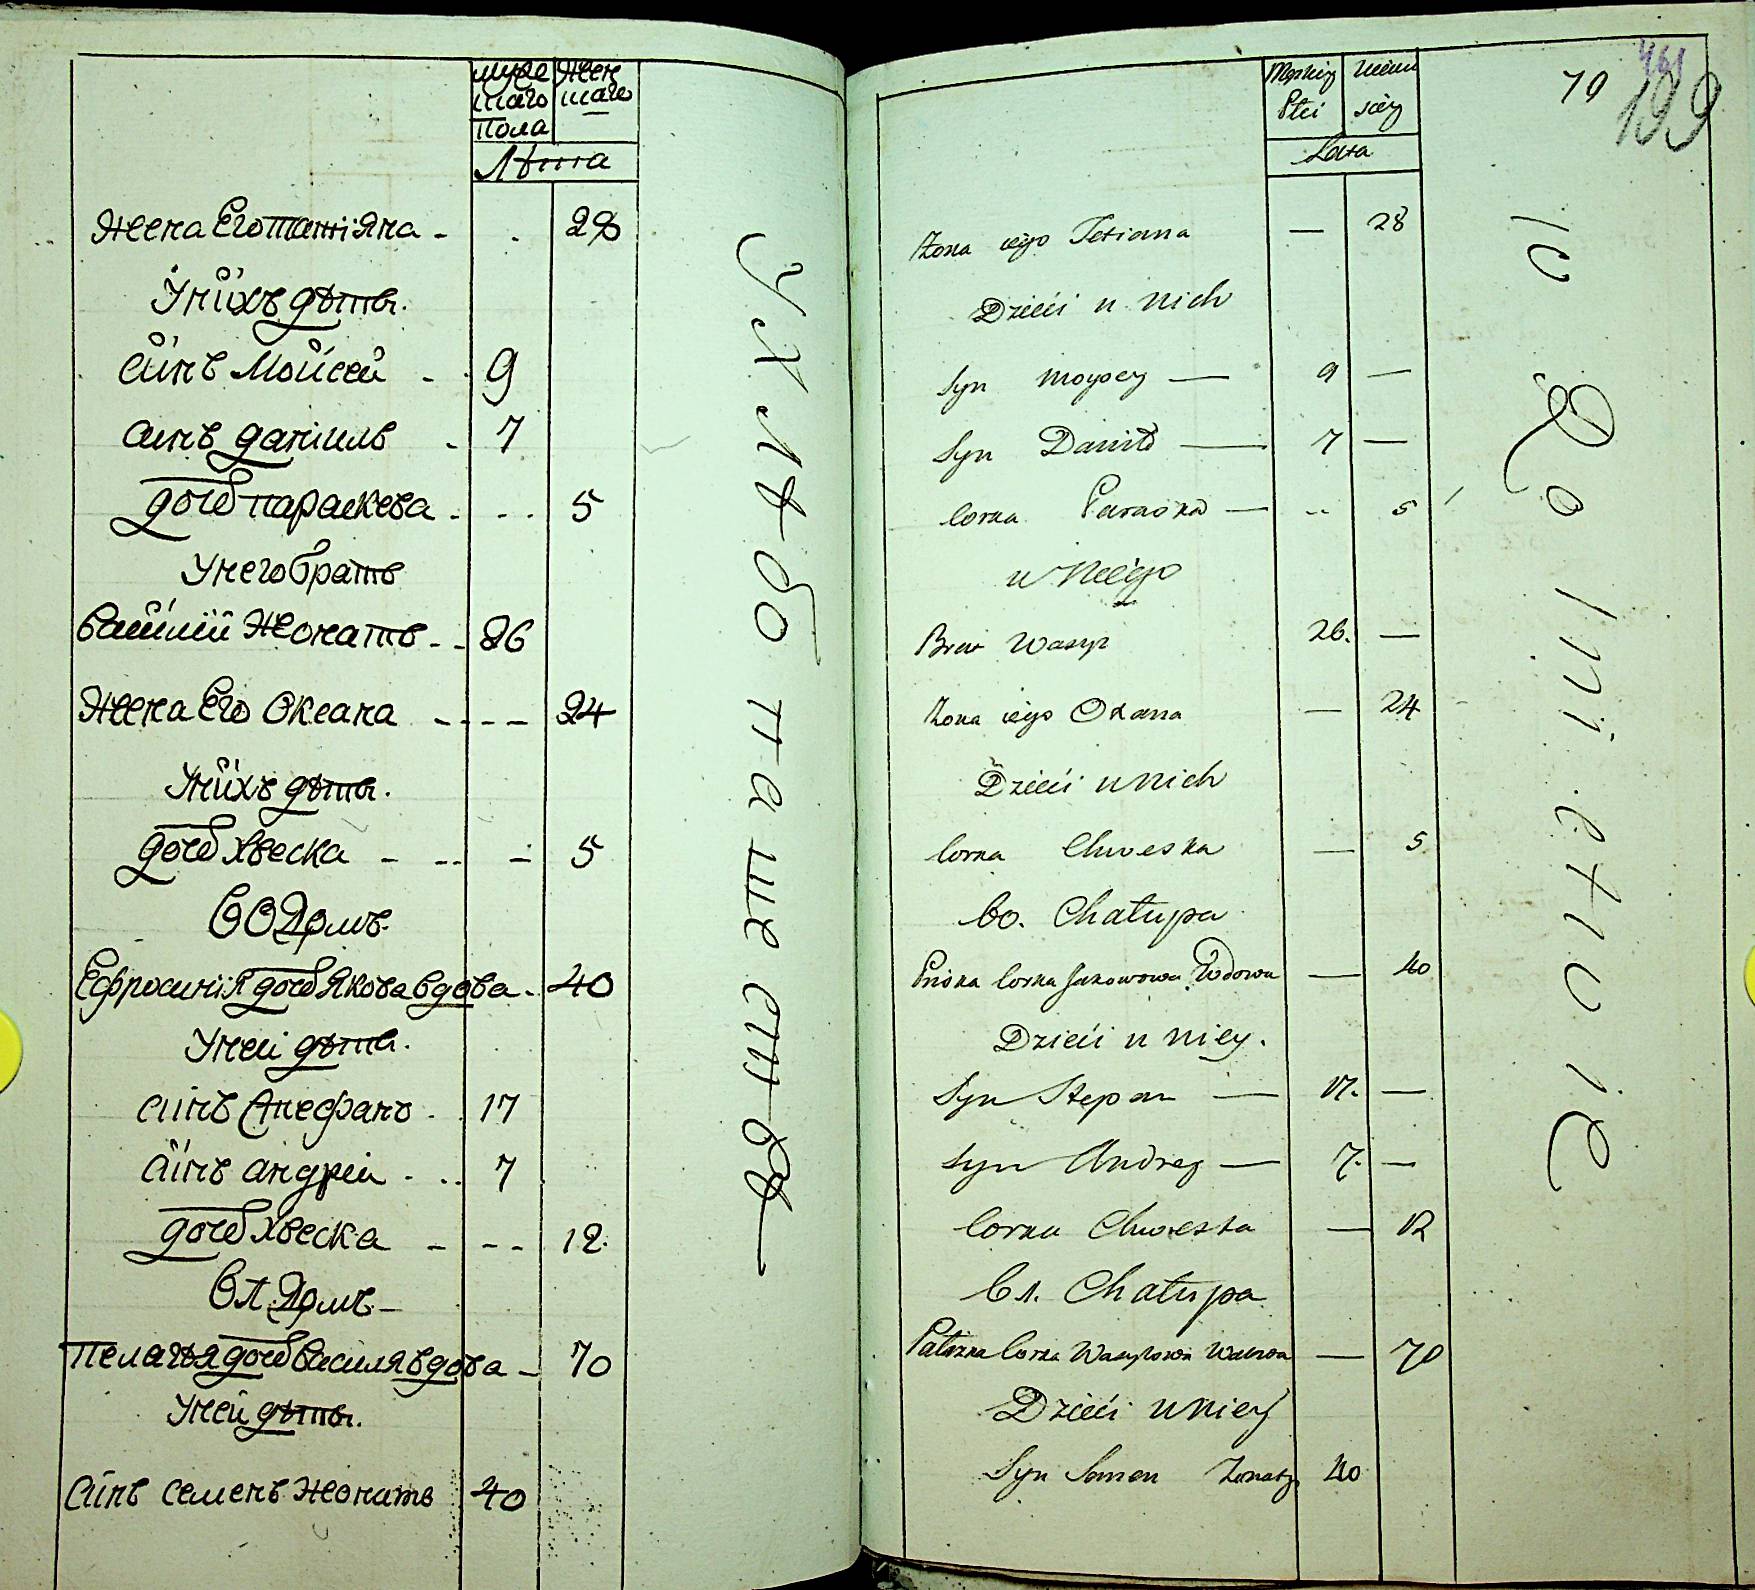 муже Жен
скаго скаго
Пола
Лѣта
Жена Его Татіяна - . 28
У нихъ дѣти.
Синъ Мойсей - . 9
синъ даніилъ - 7
дочь параскева - . . 5
У него братъ
Василій Жонатъ - - 26
Жена Его Оксана - - - - 24
У нихъ дѣти.
дочь хвеска - -- - 5
60 Домъ.
Ефросинія дочь Якова вдова - 40
У неи дѣти.
синъ Стефанъ . . 17
синъ андрей . . . 7
дочь хвеска - - - 12.
61 Домъ -
Пелагъя дочь Василя вдова - 70
У неи дѣти.
Синъ семенъ жонатъ 40
У Хлѣбопашествѣ
Męskiey Żeń
Płci skiey
Lata
79
461
199
Żona iego Tetiana — 28
Dzieći u nich
Syn Moysey — 9 —
Syn Daniło — 7 —
Corka Paraska — .. 5
u Niego
Brat Wasyl 26. —
Żona iego Oxana — 24
Dzieći u Nich
Corka Chweska — 5
60. Chałupa
Pryska Corka Jakowowa Wdowa — 40
Dzieći u niey.
Syn Stepan — 17. —
Syn Andrey — 7. —
Corka Chweska — 12
61. Chałupa
Corka Wasylowa Wdowa — 70
Dzieći u niey
Syn Semen Żonaty 40
w Rolnictwie